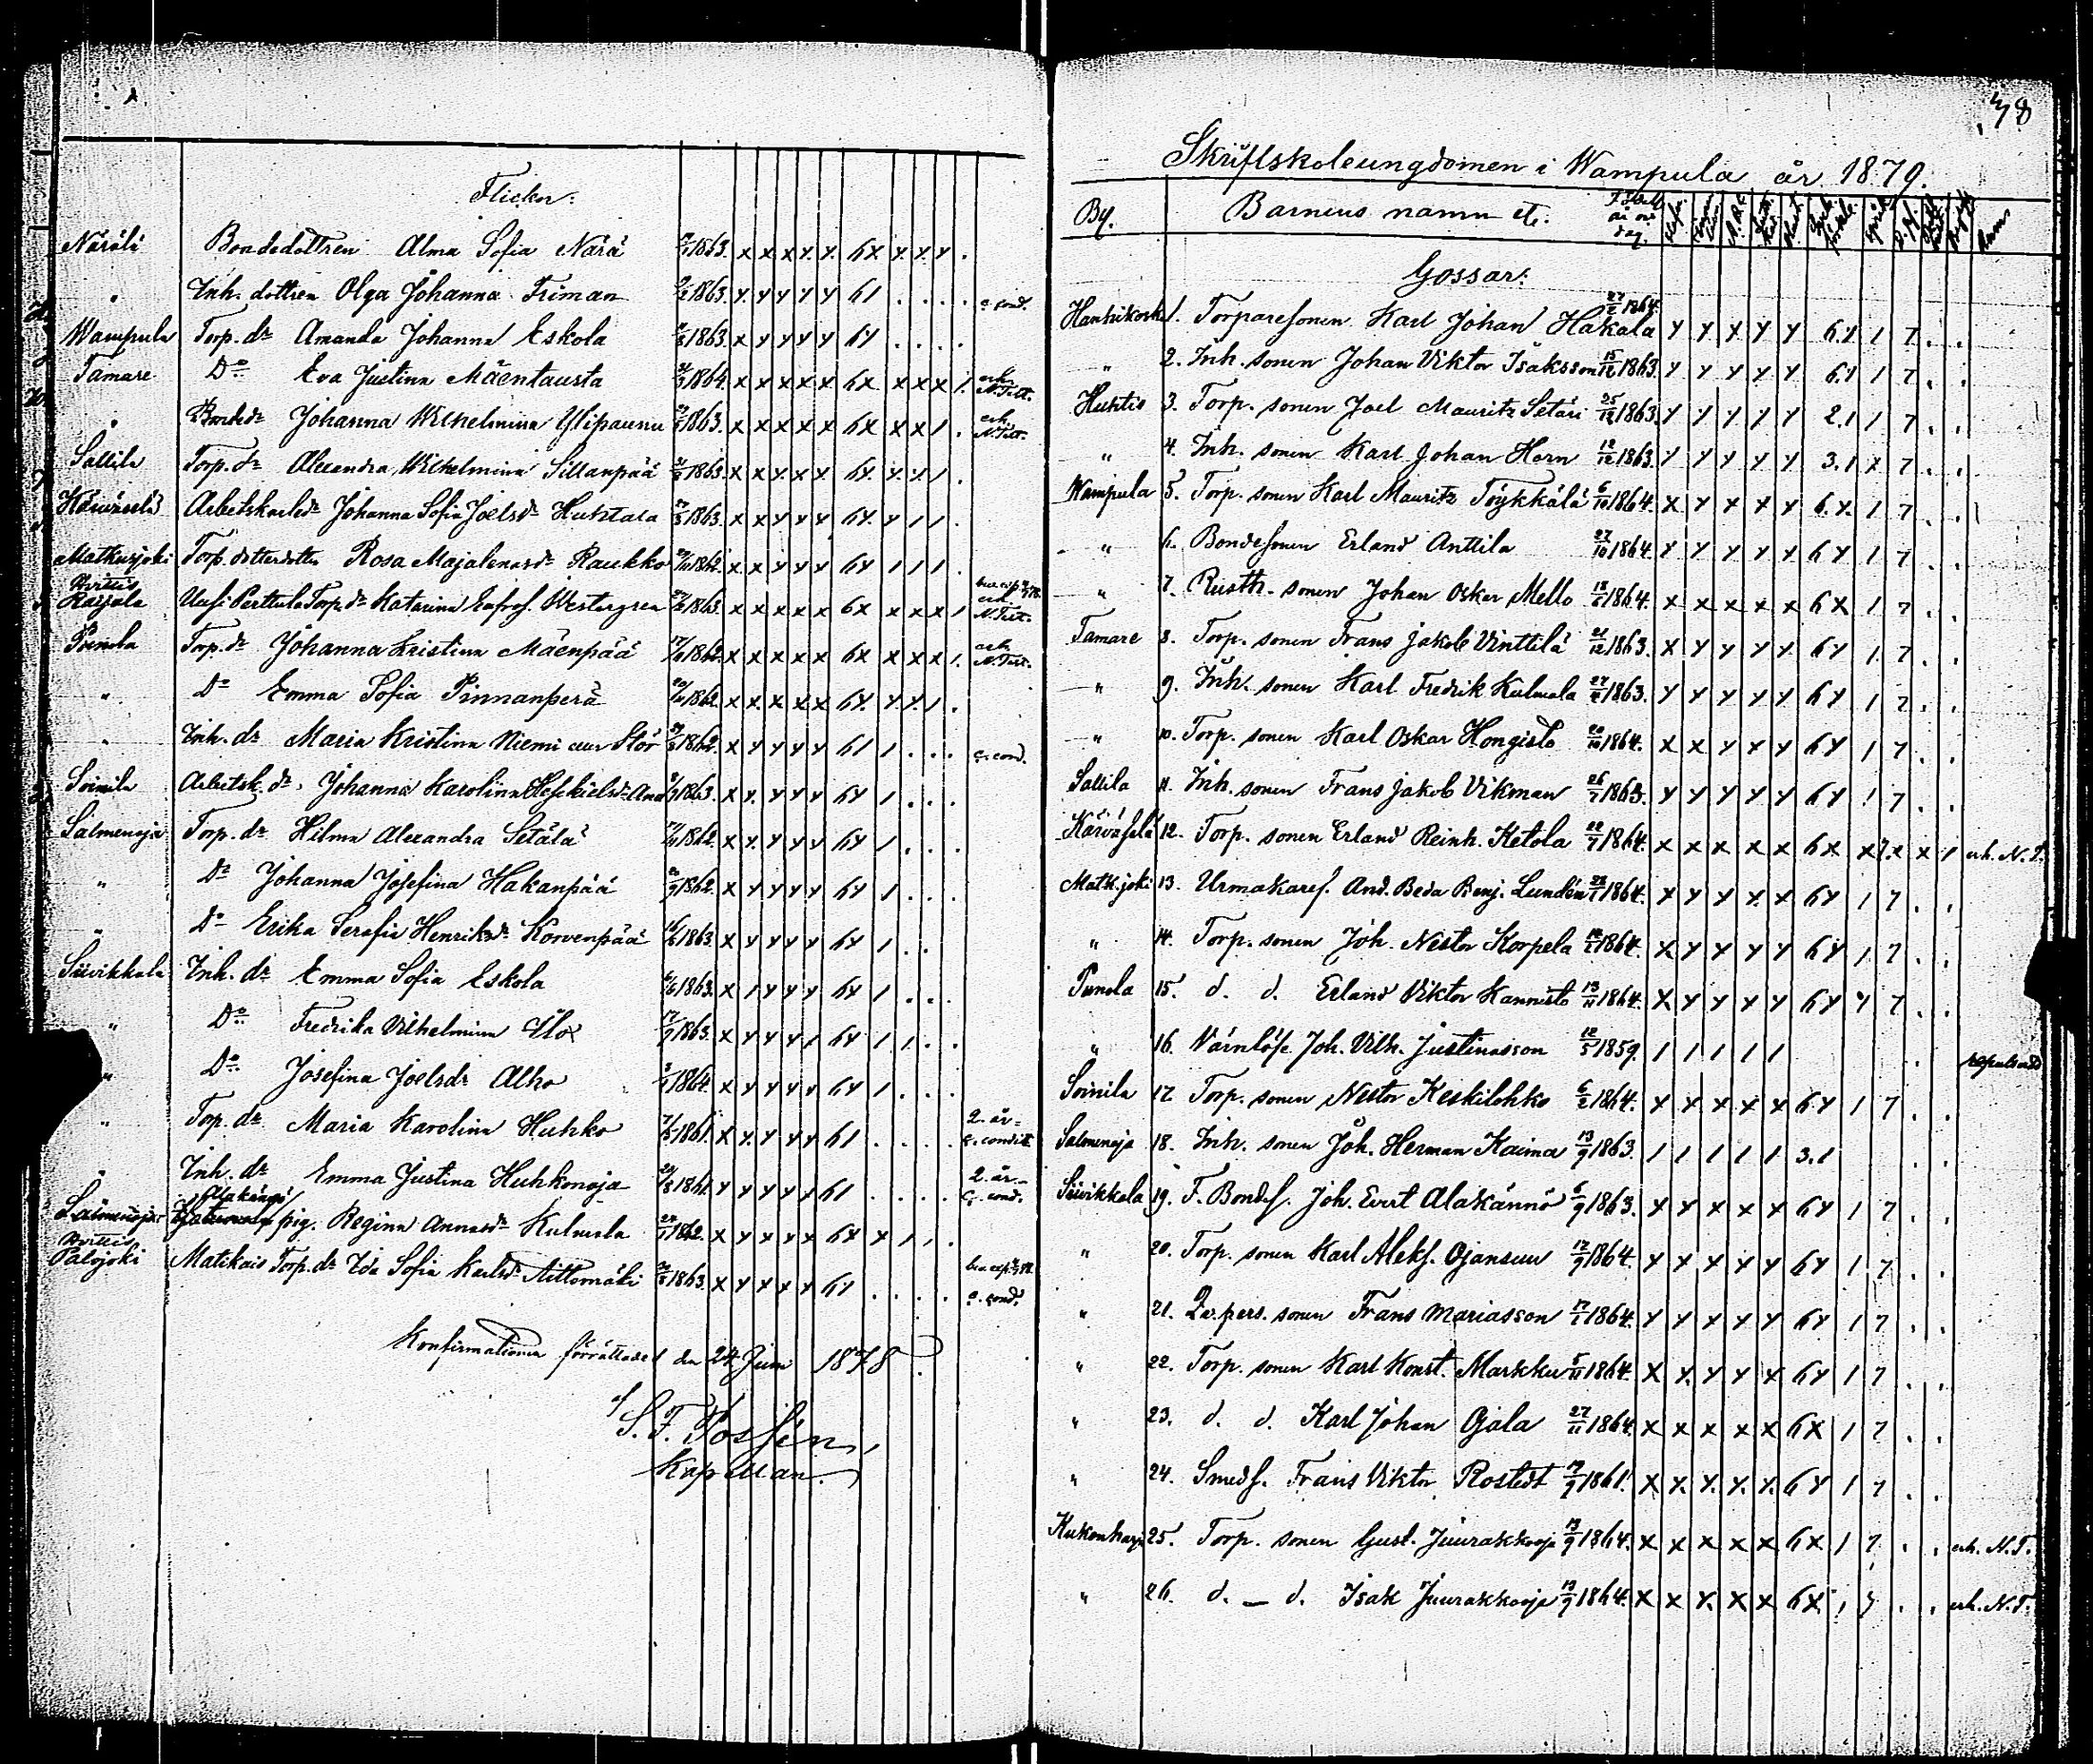 Flickor.
Näräli Bondedottren Alma Sofia Närä 1863. x x x y. y. 6x y. y. y .
" Inh. dottren Olga Johanna Friman 1863. y. y y y y 61 . . . . c. cond.
Wampula Torp. dr Amanda Johanna Eskola 1863. x y y y y 6y . . . .
Tamare Do Eva Justina Mäentausta 1864. x x x x x 6x x x x 1. erh. N. Test.
" Bondedr Johanna Wilhelmina Ylipaunu 1863. x x x x x 6x x x 1 . erh. N. Test.
Sallila Torp. dr Alexandra Wilhelmina Sillanpää 1863. x x y x y 6y. y. y. 1 .
Arbetskarlsdr Johanna Sofia Joelsdr Huhtala 1863. x x y y y 6y. y 1 1 .
Matkusjoki Torp. dotterdotter Rosa Majalenasdr Raukko 1862. x x y y y 6y 1 1 1 .
Hvittis
Raijala Uusi Perttula Torp dr Katarina Eufros. Westergren 1863. x x x x x 6x x x x 1 erh. N. Test.
Punola Torp. dr Johanna Kristina Mäenpää 1862. x x x x x 6x x x x 1. erh. N. Test.
" Do Emma Sofia Pinnanperä 1862. x x. x x x 6y. y. y. 1 .
" Inh. dr Maria Kristina Niemi eller Stör 1862. x y y y y 61 1 . . . c. cond.
Soinila Arbetsk. dr Johanna Karolina Heskielsdr 1863. x y. y y y 6y 1 . . .
Salmenoja Torp. dr Hilma Alexandra Setälä 1862. x y. y y y 6y 1 . . .
" Do Johanna Josefina Hakanpää 1862. x y y y y 6y 1 . . .
" Do Erika Serafia Henriksdr Korvenpää 1863. x y y y y 6y 1 . .
Siivikkala Inh. dr Emma Sofia Eskola 1863. x 1 y y y 6y 1 . . .
" Do Fredrika Vilhelmina Ylö 1863. x y y y 1 6y 1 1. . .
" Do Josefina Joelsdr Alho 1864. x y y y y 6y 1 . . .
" Torp. dr Maria Karolina Huhko 1861. x y. y. y y 61 . . . . 2. år. c. condit.
" Inh. dr Emma Justina Huhkonoja 1861. y y y y y 61 . . . . 2. år. c. cond.
Alakännö
Salmenoja pig. Regina Annasdr Kulmala 1862. x y y y x 6x x 1 . .
Hvittis
Palojoki Matikais Torp. dr Ida Sofia Karlsdr Aittomäki 1863. x y y y y 61 . . . . c. cond.
Konfirmationen förrättades den 24 Juni 1878.
S. F. Possén,
Kapellan.
38
Skriftskoleungdomen i Wampula år 1879.
By. Barnens namn etc. Födelse år och dag.
Gossar:
1. Torparesonen Karl Johan Hakala 27/2 1864. y y x y y 6.y 1 7 . .
" 2. Inh. sonen Johan Viktor Isaksson 15/12 1863. y y y y y 6.y 1 7 . .
Huhtis 3. Torp. sonen Joel Mauritz Setäri 25/12 1863. y y y y y 2.1 1 7 . .
" 4. Inh. sonen Karl Johan Horn 12/12 1863. y y y y y 3.1 x 7 . .
Wampula 5. Torp. sonen Karl Mauritz Töykkälä 6/10 1864. x y x x y 6.y. 1 7 . .
" 6. Bondesonen Erland Anttila 27/10 1864. y y y y x 6 y 1 7 . .
" 7. Rusth. sonen Johan Oskar Mello 1864. x x x x x 6 x 1 7 . .
Tamare 8. Torp. sonen Frans Jakob Vinttilä 21/12 1863. x y y y y. 6 y 1 7 . .
" 9. Inh. sonen Karl Fredrik Kulmala 1863. y y y y y 6 y 1 7 . .
" 10. Torp. sonen Karl Oskar Hongisto 20/10 1864. x x y y y 6 y 1 7 . .
Sallila 11. Inh. sonen Frans Jakob Vikman 26/7 1863. y y y y y 6 y 1 7 . .
12. Torp. sonen Erland Reinh. Ketola 22/7 1864. x x x x x 6 x x 7. x x 1 erh. N. T.
Matk.joki 13. Urmakares. And. Beda Benj. Lundén 1864. x y y y. x 6 y 1 7 . .
" 14. Torp. sonen Joh. Nestor Korpela 1864. x y y y y 6 y 1 7 . .
Punola 15. d. d. Erland Viktor Kannisto 13/11 1864. x y y y y 6 y y 7 . .
" 16. Värnlöse Joh. Vilh. Justinasson 12/5 1859. 1 1 1 1 1 .
Soinila 17. Torp. sonen Nestor Keskilohko 6/2 1864. x x x x x 6 y 1 7 . .
Salmenoja 18. Inh. sonen Joh. Herman Kaima 13/9 1863. 1 1 1 1 1 3.1 . .
Siivikkala 19. F. Bondes. Joh. Evert Alakännö 6/9 1863. x x x x x 6 y 1 7 . .
" 20. Torp. sonen Karl Aleks. Ojansuu 12/9 1864. y y y y y 6 y 1 7 . .
" 21. sonen Frans Mariasson 1864. y y y y y 6 y 1 7 . .
" 22. Torp. sonen Karl Konst. Markku 1864. x y. y y x 6 y 1 7 . .
" 23. d. d. Karl Johan Ojala 27/11 1864. x x x x x 6 x 1 7 . .
" 24. Smeds. Frans Viktor Rostedt 1861. x x. y. y. y. 6 y 1 7 . .
Kukonharja 25. Torp. sonen Gust. Juurakkooja 13/9 1864. x x x x x 6 x 1 7 . . erh. N. T.
" 26. d. — d. Isak Juurakkooja 13/9 1864. x x x. x x 6 x 1 7 . . erh. N. T.